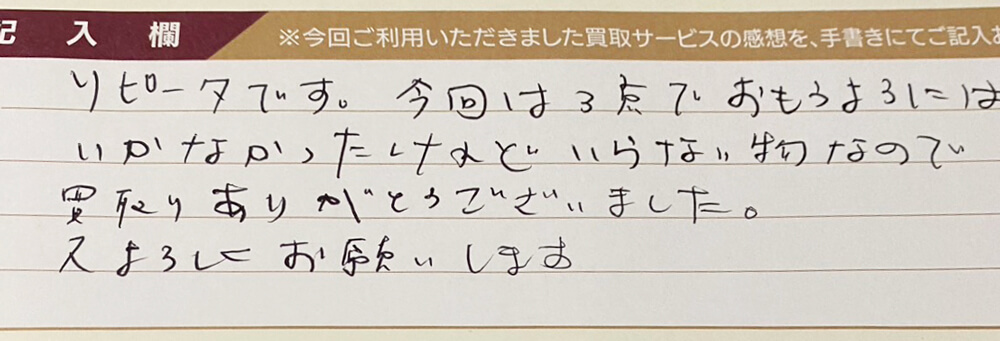 記入欄
※今回ご利用いただきました買取サービスの感想を、手書きにてご記入
リピータです。今回は3点でおもうよろには
いかなかったけれどいらない物なので
買取りありがとうございました。
又よろしくお願いします